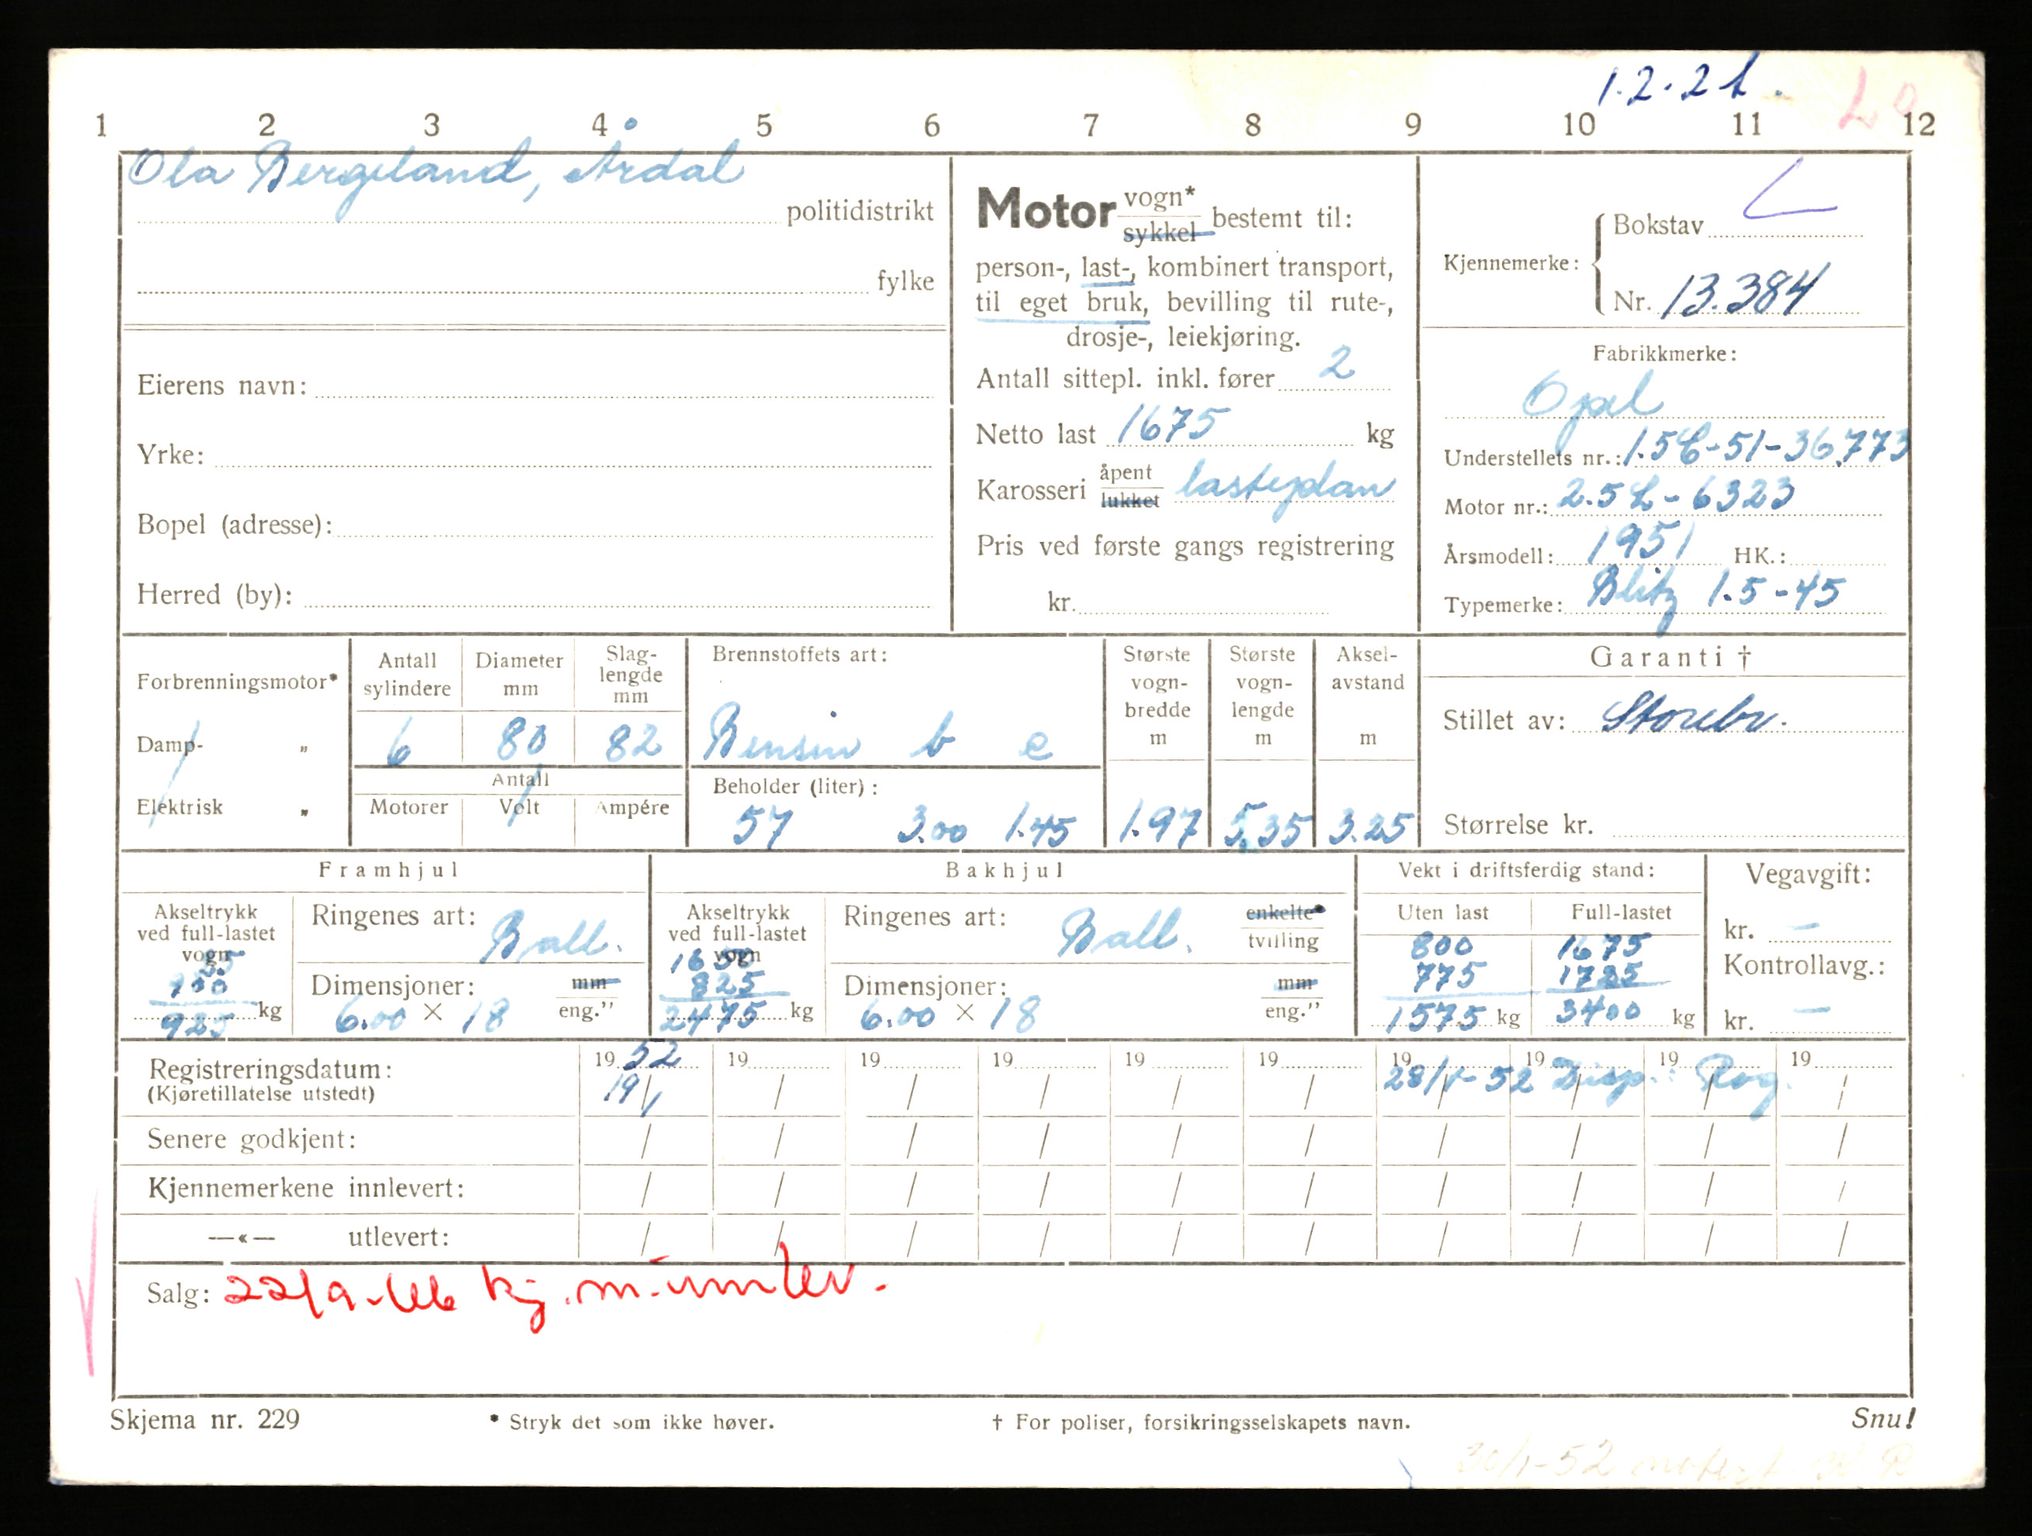 1.2.2L.
1 2 3 4 5 6 7 8 9 10 11 12
Ola Bergeland, Årdal
politidistrikt
fylke
Eierens navn:
Yrke:
Bopel (adresse):
Herred (by):
Motor vogn* sykkel bestemt til:
person-, last-, kombinert transport,
til eget bruk, bevilling til rute-,
drosje-, leiekjøring.
Antall sittepl. inkl. fører 2
Netto last 1675 kg
Karosseri åpent lukket lasteplan
Pris ved første gangs registrering
kr.
Kjennemerke: Bokstav L
Nr. 13.384
Fabrikkmerke:
Opel
Understellets nr.: 1.5L-51-36773
Motor nr.: 2.5L-6323
Årsmodell: 1951 HK.:
Typemerke: Blitz 1.5-45
Forbrenningsmotor*
Damp- „
Elektrisk „
Antall sylindere
Diameter mm
Slag-lengde mm
6 80 82
Antall
Motorer Volt Ampére
Brennstoffets art:
Bensin b e
Beholder (liter):
57 3.00 1.45
Største vogn-bredde m
1.97
Største vogn-lengde m
5.35
Aksel-avstand m
3.25
Garanti †
Stillet av: Storebr.
Størrelse kr.
Framhjul
Akseltrykk ved full-lastet vogn
925 kg
Ringenes art: Ball.
Dimensjoner: mm
6.00 × 18 eng."
Bakhjul
Akseltrykk ved full-lastet vogn
1650
825
2475 kg
Ringenes art: Ball. enkelte* tvilling
Dimensjoner: mm
6.00 × 18 eng."
Vekt i driftsferdig stand:
Uten last Full-lastet
800 1675
775 1725
1575 kg 3400 kg
Vegavgift:
kr. —
Kontrollavg.:
kr. —
Registreringsdatum: 19 52 19 19 19 19 19 19 19 19 19
(Kjøretillatelse utstedt) 19/1 28/1-52 Disp.: Rog.
Senere godkjent:
Kjennemerkene innlevert:
—«— utlevert:
Salg: 22/9-66 kj.m. innlev.
Skjema nr. 229
* Stryk det som ikke høver.
† For poliser, forsikringsselskapets navn.
Snu!